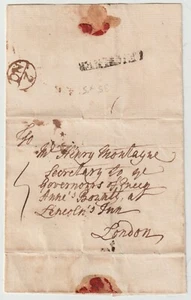 To
Mr Henry Montague
Secretary to ye
Governorrs of Queen
Anne's Bounty, at
Lincoln's Inn
London